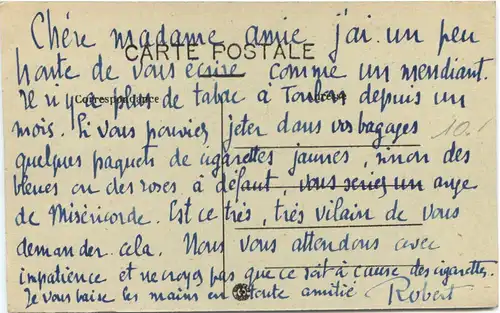 Chère madame amie j'ai un peu
CARTE POSTALE
honte de vous écrire comme un mendiant.
Correspondance
Il n'y a plus de tabac à Toulon depuis un
mois. Si vous pouviez jeter dans vos bagages
10.1
quelques paquets de cigarettes jaunes, sinon des
bleues ou des roses à défaut, vous seriez un ange
de Miséricorde. Est ce très, très vilain de vous
demander cela. Nous vous attendons avec
impatience et ne croyez pas que ce soit à cause des cigarettes.
Je vous baise les mains en toute amitié Robert